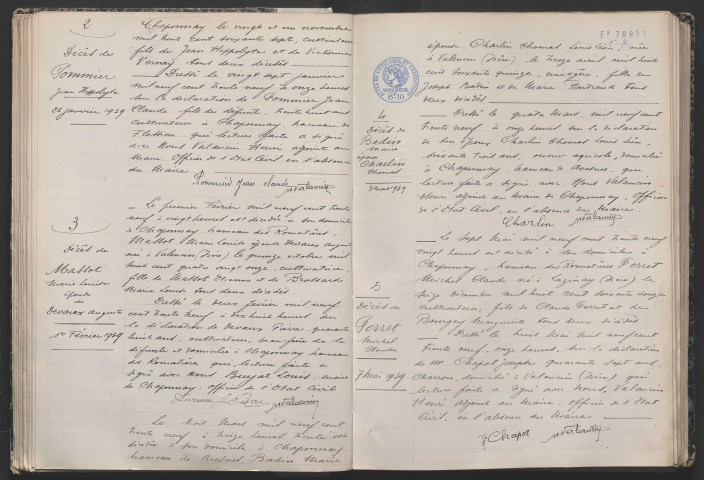 2
Décès de
Pommier
Jean Hippolyte
26 janvier 1939
Chaponnay le vingt et un novembre
mil huit cent soixante sept, cultivateur
fils de Jean Hippolyte et de Victorine
Vernay tous deux décédés
Dressé le vingt sept janvier
mil neuf cent trente neuf à onze heures
sur la déclaration de Pommier Jean
Claude fils du défunt, trente huit ans
cultivateur à Chaponnay, hameau de
qui lecture faite a signé
avec Nous Valancin Henri adjoint au
Maire Officier de l'Etat Civil en l'absence
du Maire
Pommier Jean Claude Valancin
3
Décès de
Massot
Marie Louise
épouse
de
Devaux Auguste
1er Février 1939
Le premier Février mil neuf cent trente
neuf à vingt heures est décédée à son domicile
à Chaponnay, hameau des Romatières
Massot Marie Louise épouse Devaux Auguste
née à Valencin (Isère) le quinze octobre mil
huit cent quatre vingt onze, cultivatrice,
fille de Massot Etienne et de Brossard
Marie Louise tous deux décédés
Dressé le deux février mil neuf
cent trente neuf à dix huit heures sur
la déclaration de Devaux Pierre, quarante
huit ans, cultivateur, beau frère de la
défunte et domicilié à Chaponnay hameau
des Romatières qui, lecture faite a
signé avec Nous Louis, Maire
de Chaponnay, officier de l'Etat Civil
Valancin
Le trois Mars mil neuf cent
trente neuf à treize heures trente est
décédée à son domicile à Chaponnay
hameau de Badin Marie
4
Décès de
Badin
Marie
épouse
Charlin
Thomas
3 mars 1939
épouse Charlin Thomas née
à Valencin (Isère) le treize avril mil huit
cent soixante quinze, ménagère, fille de
Joseph Badin et de Marie Bertrand tous
deux décédés
Dressé le quatre Mars mil neuf cent
trente neuf à onze heures sur la déclaration
de son époux Charlin Thomas
soixante trois ans, ouvrier agricole, domicilié
à Chaponnay, hameau de qui
lecture faite a signé avec Nous Valancin
Henri adjoint au Maire de Chaponnay, Officier
de l'Etat Civil, en l'absence du Maire
Charlin Valancin
5
Décès de
Ferret
Michel
Claude
7 Mai 1939
Le sept Mai mil neuf cent trente neuf
vingt heures est décédé à son domicile à
Chaponnay, hameau des Romatières Ferret
Michel Claude né à (Isère) le
seize décembre mil huit cent soixante douze
cultivateur, fils de Claude Ferret et de
Bourgey Marguerite tous deux décédés
Dressé le huit Mai mil neuf cent
trente neuf, onze heures, sur la déclaration
de Mr Chapot Joseph quarante sept ans
Charron, domicilié à Valencin (Isère) qui
lecture faite a signé avec Nous Valancin
Henri adjoint au Maire, officier de l'Etat
Civil, en l'absence du Maire
J Chapot Valancin